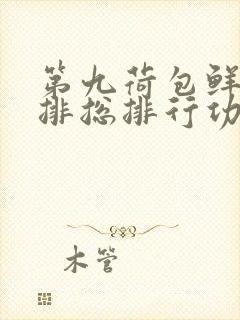 第九荷包鲜
排总排行功
木管